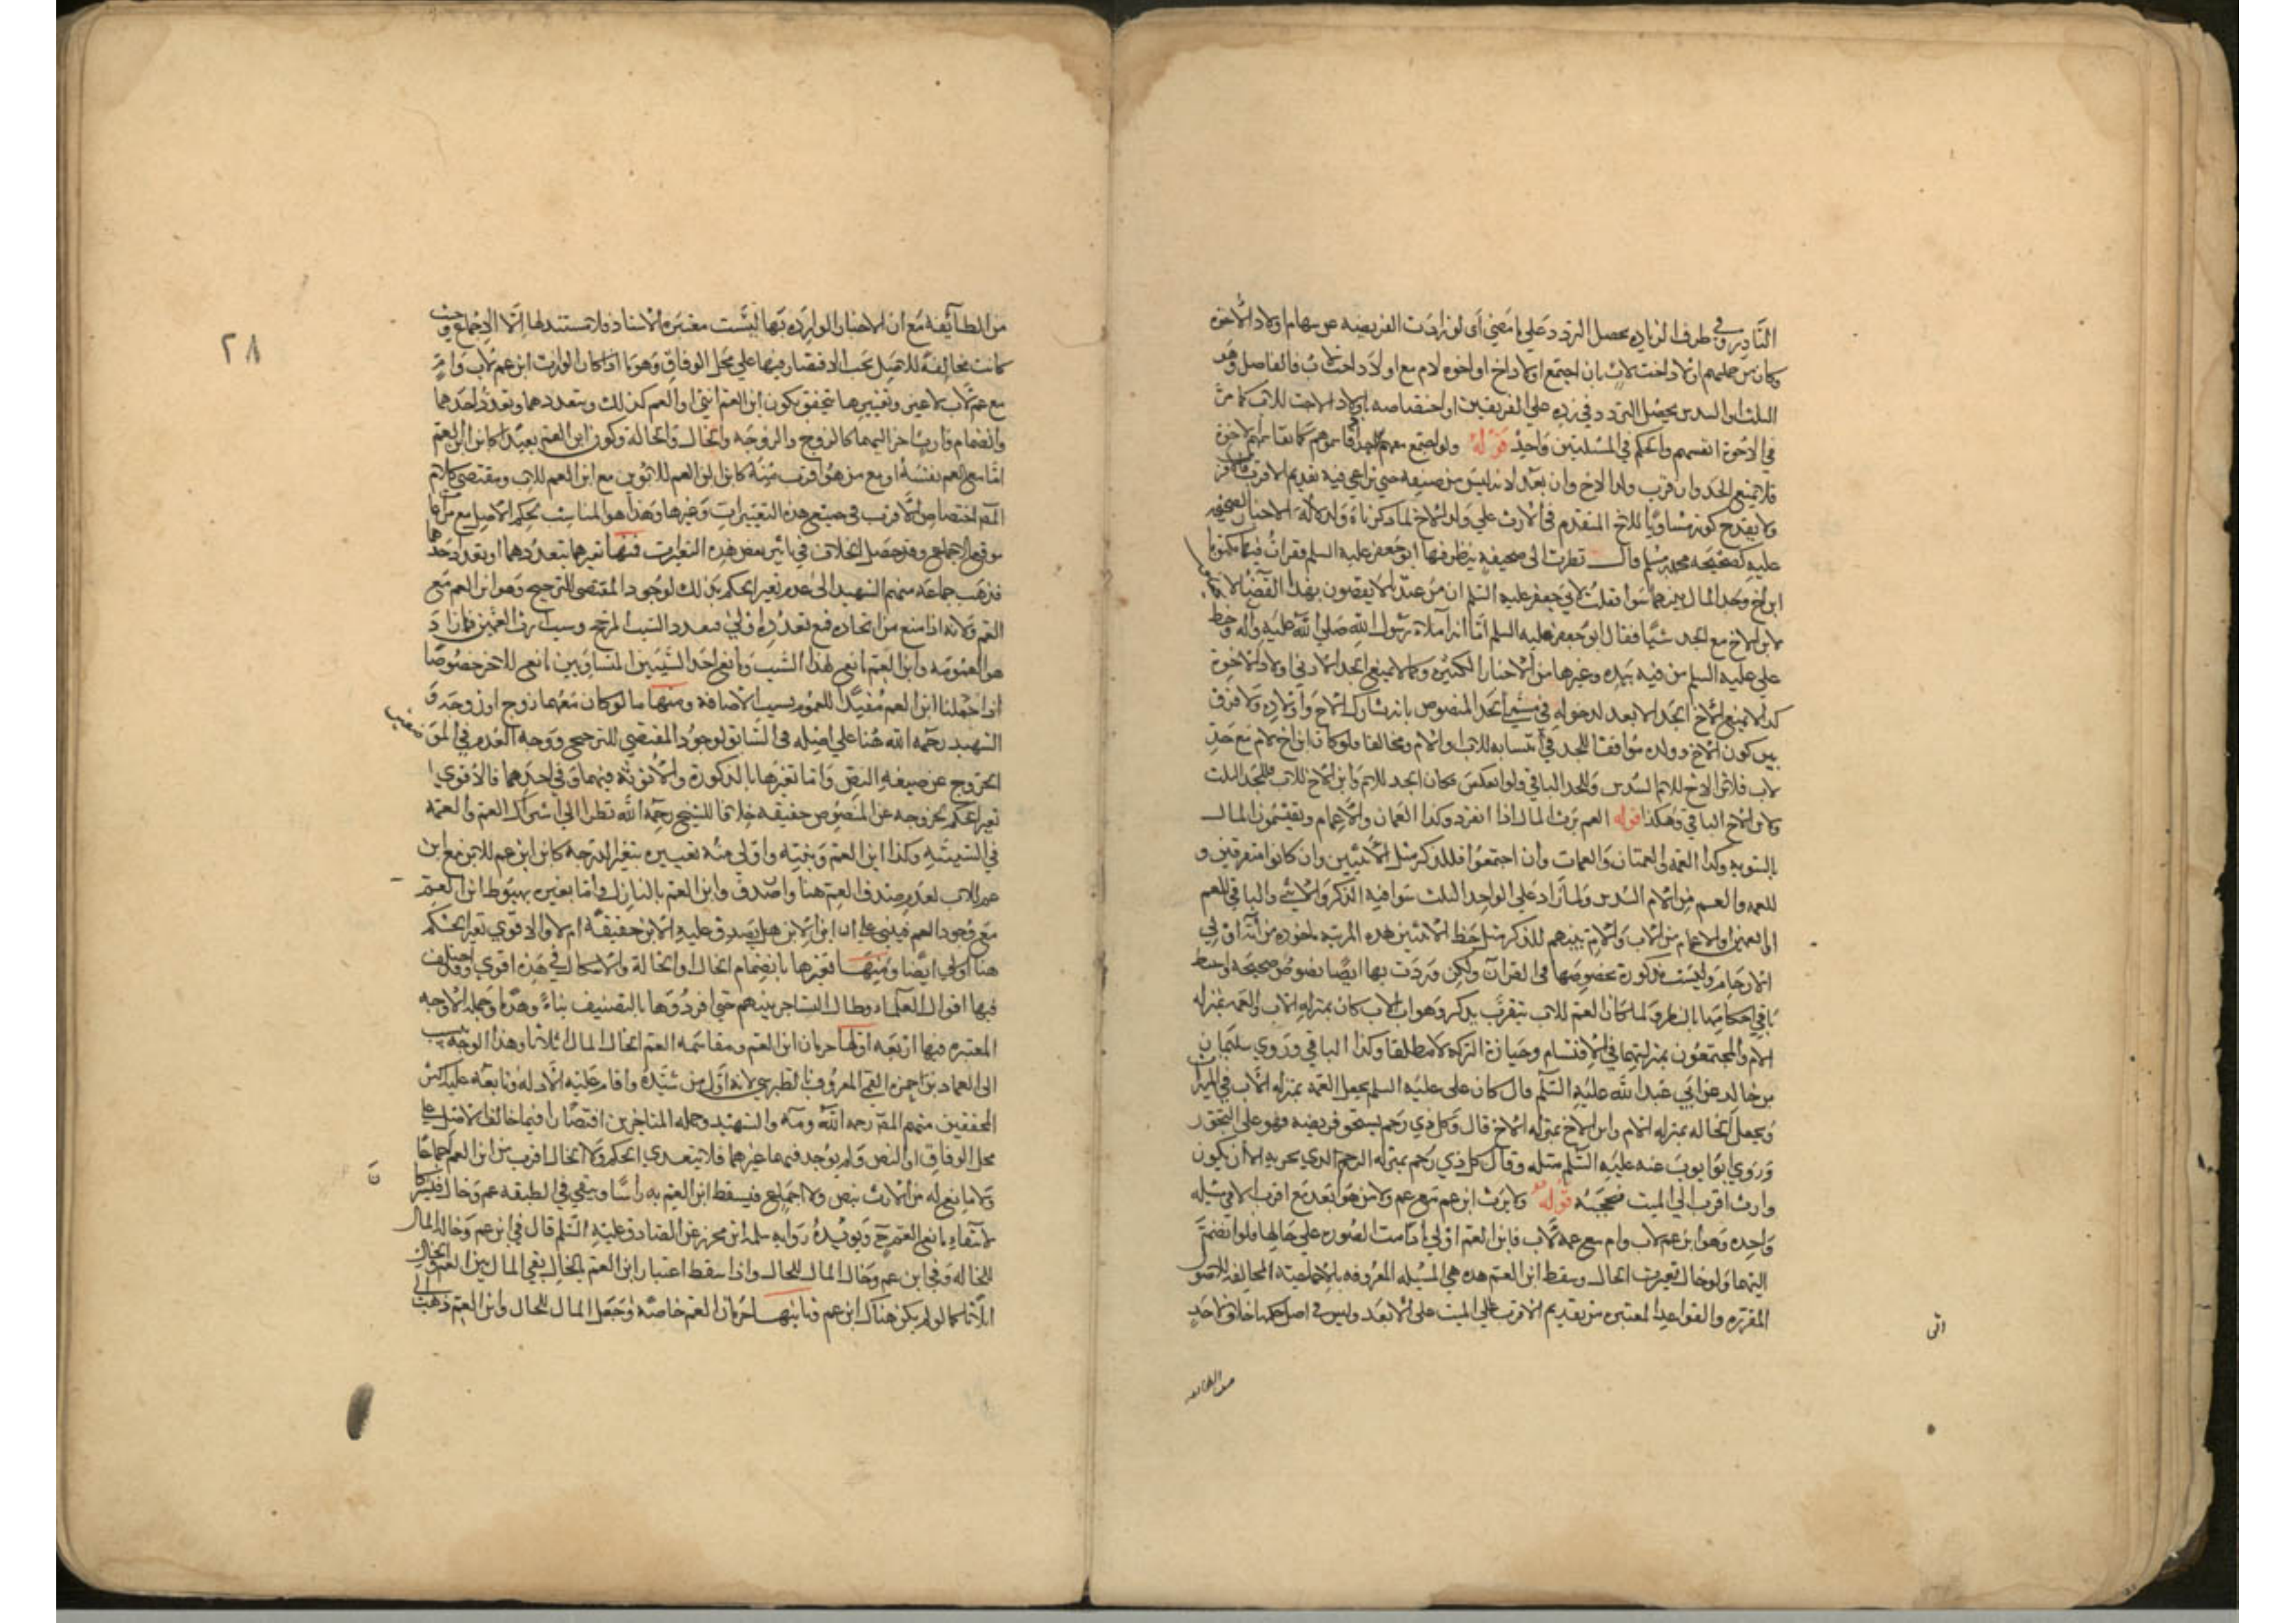 النادر وفي طرف الزيادة يحصل التردد على ما مضى أي لو زادت الفريضة عن سهام اولاد الأخوة
وكان من جملهم اولاد اخت لاب بان اجتمع اولاد اخ او اخوه لام مع اولاد اخت لاب فالفاضل وهو
الثلث او السدس يحصل التردد في رده على الفريقين او اختصاصه باولاد الاخت للاب كما مر
في الاخوة انفسهم والحكم في المسئلتين واحد قوله ولو اجتمع معهم الجد قاسموهم كما تقاسمهم الاخوة
فلا يمنع الجد وان قرب ولد الاخ وان بعد لانه ليس من صنفه حتى يراعى فيه تقديم الاقرب فالاقرب
ولا يقدح كونه مساويا للاخ المتقدم في الارث على ولد الاخ لما ذكرناه ولدلالة الاخبار الصحيحه
عليه كصحيحه محمد بن مسلم قال نظرت الى صحيفه ينظر فيها ابو جعفر عليه السلم فقرات فيها مكتوبا
ابن اخ وجد المال بينهما سوا فقلت لابي جعفر عليه السلم ان من عندنا لا يقضون بهذا القضا لا يجعلون
لابن الاخ مع الجد شيا فقال ابو جعفر عليه السلم اما انه املاء رسول الله صلى الله عليه وآله وخط
علي عليه السلم من فيه بيده وغيرها من الاخبار الكثيره وكما لا يمنع الجد الادنى اولاد الاخوة
كذا لا يمنع الاخ الجد الابعد لدخوله في مسمى الجد المنصوص بانه يشارك الاخ واولاده ولا فرق
بين كون الاخ وولده موافقا للجد في انتسابه للاب او الام ومخالفا فلو كان ابن اخ لام مع جد
لاب فلابن الاخ للام السدس وللجد الباقي ولو انعكس فكان الجد للام وابن الاخ للاب فللجد الثلث
ولابن الاخ الباقي وهكذا قوله العم يرث المال اذا انفرد وكذا العمان والاعمام ويقتسمون المال
بالسويه وكذا العمه والعمتان والعمات وان اجتمعوا فللذكر مثل الأنثيين وان كانوا متفرقين و
للعمه والعم من الام السدس ولما زاد على الواحد الثلث سوا فيه الذكر والانثى والباقي للعم
او العمين او الاعمام من الاب والام بينهم للذكر مثل حظ الانثيين هذه المرتبه ماخوذه من آية اولي
الارحام وليست مذكورة بخصوصها في القرآن ولكن وردت بها ايضا نصوص صحيحه
باقي احكامها ولما كان العم للاب يتقرب بذكر وهو اب الاب كان بمنزله الاب والعمه بمنزله
الام والمجتمعون بمنزلتهما في الاقتسام وحيازة التركه لا مطلقا وكذا الباقي وروى سليمان
بن خالد عن ابي عبد الله عليه السلم قال كان علي عليه السلم يجعل العمه بمنزله الاب في الميراث
ويجعل الخاله بمنزله الام وابن الاخ بمنزله الاخ قال وكل ذي رحم يستحق فريضه فهو على النحو
وروى ابو ايوب عنه عليه السلم مثله وقال كل ذي رحم بمنزله الرحم الذي يجر به الا ان يكون
وارث اقرب الى الميت فيحجبه قوله ولا يرث ابن عم مع عم ولا من هو ابعد مع اقرب الا في مسئله
واحده وهو ابن عم لاب وام مع عم لاب فابن العم اولى ما دامت الصوره على حالها فلو انضم
اليهما ولو خال تغيرت الحال وسقط ابن العم هذه هي المسئله المعروفه بالاجماعيه المخالفه للاصول
المقرره والقواعد المعتبره من تقديم الاقرب الى الميت على الابعد وليس في اصل حكمها خلاف لاحد
من الطائفه
من الطائفه مع ان الاخبار الوارده بها ليست معتبره الاسناد فلا مستند لها الا الاجماع وحيث
كانت مخالفة للاصل يجب الاقتصار فيها على محل الوفاق وهو ما اذا كان الوارث ابن عم لاب وام
مع عم لاب لا غير وتغييرها يتحقق بكون ابن العم انثى او العم كذلك وبتعددهما وتعدد احدهما
وانضمام وارث اخر اليهما كالزوج والزوجه والخال والخالة وكون ابن العم بعيدا كابن ابن العم
اما مع العم نفسه او مع من هو اقرب منه كابن ابن العم للابوين مع ابن العم للاب ومقتضى كلام
المصـ اختصاص الاقرب في جميع هذه التغييرات وغيرها وهذا هو المناسب لحكم الاصل مع مراعاة
موضع الاجماع وقد حصل الخلاف في تاثير بعض هذه التغيرات فمنها تغيرهما بتعددهما او تعدد احدهما
فذهب جماعة منهم الشهيد الى عدم تغير الحكم بذلك لوجود المقتضي للترجيح وهو ابن العم مع
العم ولانه اذا منع مع اتحاده فمع تعدده اولى فتعدد السبب المرجح وسبب ارث العمين فما زاد
هو العمومه وابن العم مانع لهذا السبب ومانع احد السببين المتساويين مانع للاخر خصوصا
اذا جعلنا ابن العم مفيدا للعموم بسبب الاضافة ومنها ما لو كان معهما زوج او زوجه و
الشهيد رحمه الله هنا على اصله في السابق لوجود المقتضي للترجيح ووجه العدم في الموضعين
الخروج عن صيغه النص واما تغيرها بالذكورة والانوثه فيهما وفي احدهما فالاقوى
تغير الحكم لخروجه عن المنصوص حقيقه خلافا للشيخ رحمه الله نظرا الى اشتراك العم والعمه
في السببيه وكذا ابن العم وبنته واولى منه تغييره بتغير الدرجه كابن ابن عم للابوين مع ابن
عم للاب لعدم صدق العم هنا واصدق وابن العم بالنازل واما تغيره بهبوط ابن العم
مع وجود العم فيبنى على ان ابن الابن هل يصدق عليه الابن حقيقة ام لا والاقوى تغير الحكم
هنا اولى ايضا ومنها تغيرها بانضمام الخال والخالة والاشكال في هذه اقوى وقد اختلف
فيها اقوال العلماء وطال التشاجر بينهم حتى افردوها بالتصنيف بناء وهدما وجمله الاوجه
المعتبره فيها اربعه اولها حرمان ابن العم ومقاسمه العم الخال المال اثلاثا وهذا الوجه ينسب
الى العماد بن حمزه القمي المعروف بالطبرسي لانه اول من شيده واقام عليه الادله وتابعه عليه اكثر
المحققين منهم المصـ رحمه الله ومه والشهيد وجمله المتاخرين اقتصارا فيما خالف الاصل على
محل الوفاق او النص ولم يوجد فيما غيرهما فلا يتعدى الحكم ولان الخال اقرب من ابن العم اجماعا
ولا مانع له من الارث بنص ولا اجماع فيسقط ابن العم به راسا ويبقى في الطبقه عم وخال فيشتركان
لانتفاء مانع العم ح ويؤيده روايه سلمه ابن محرز عن الصادق عليه السلم قال في ابن عم وخاله المال
للخاله وفي ابن عم وخال المال للخال واذا سقط اعتبار ابن العم بالخال بقي المال بين العم والخال
اثلاثا كما لو لم يكن هناك ابن عم وثانيها حرمان العم خاصه وجعل المال للخال وابن العم ذهب الى
٢٨